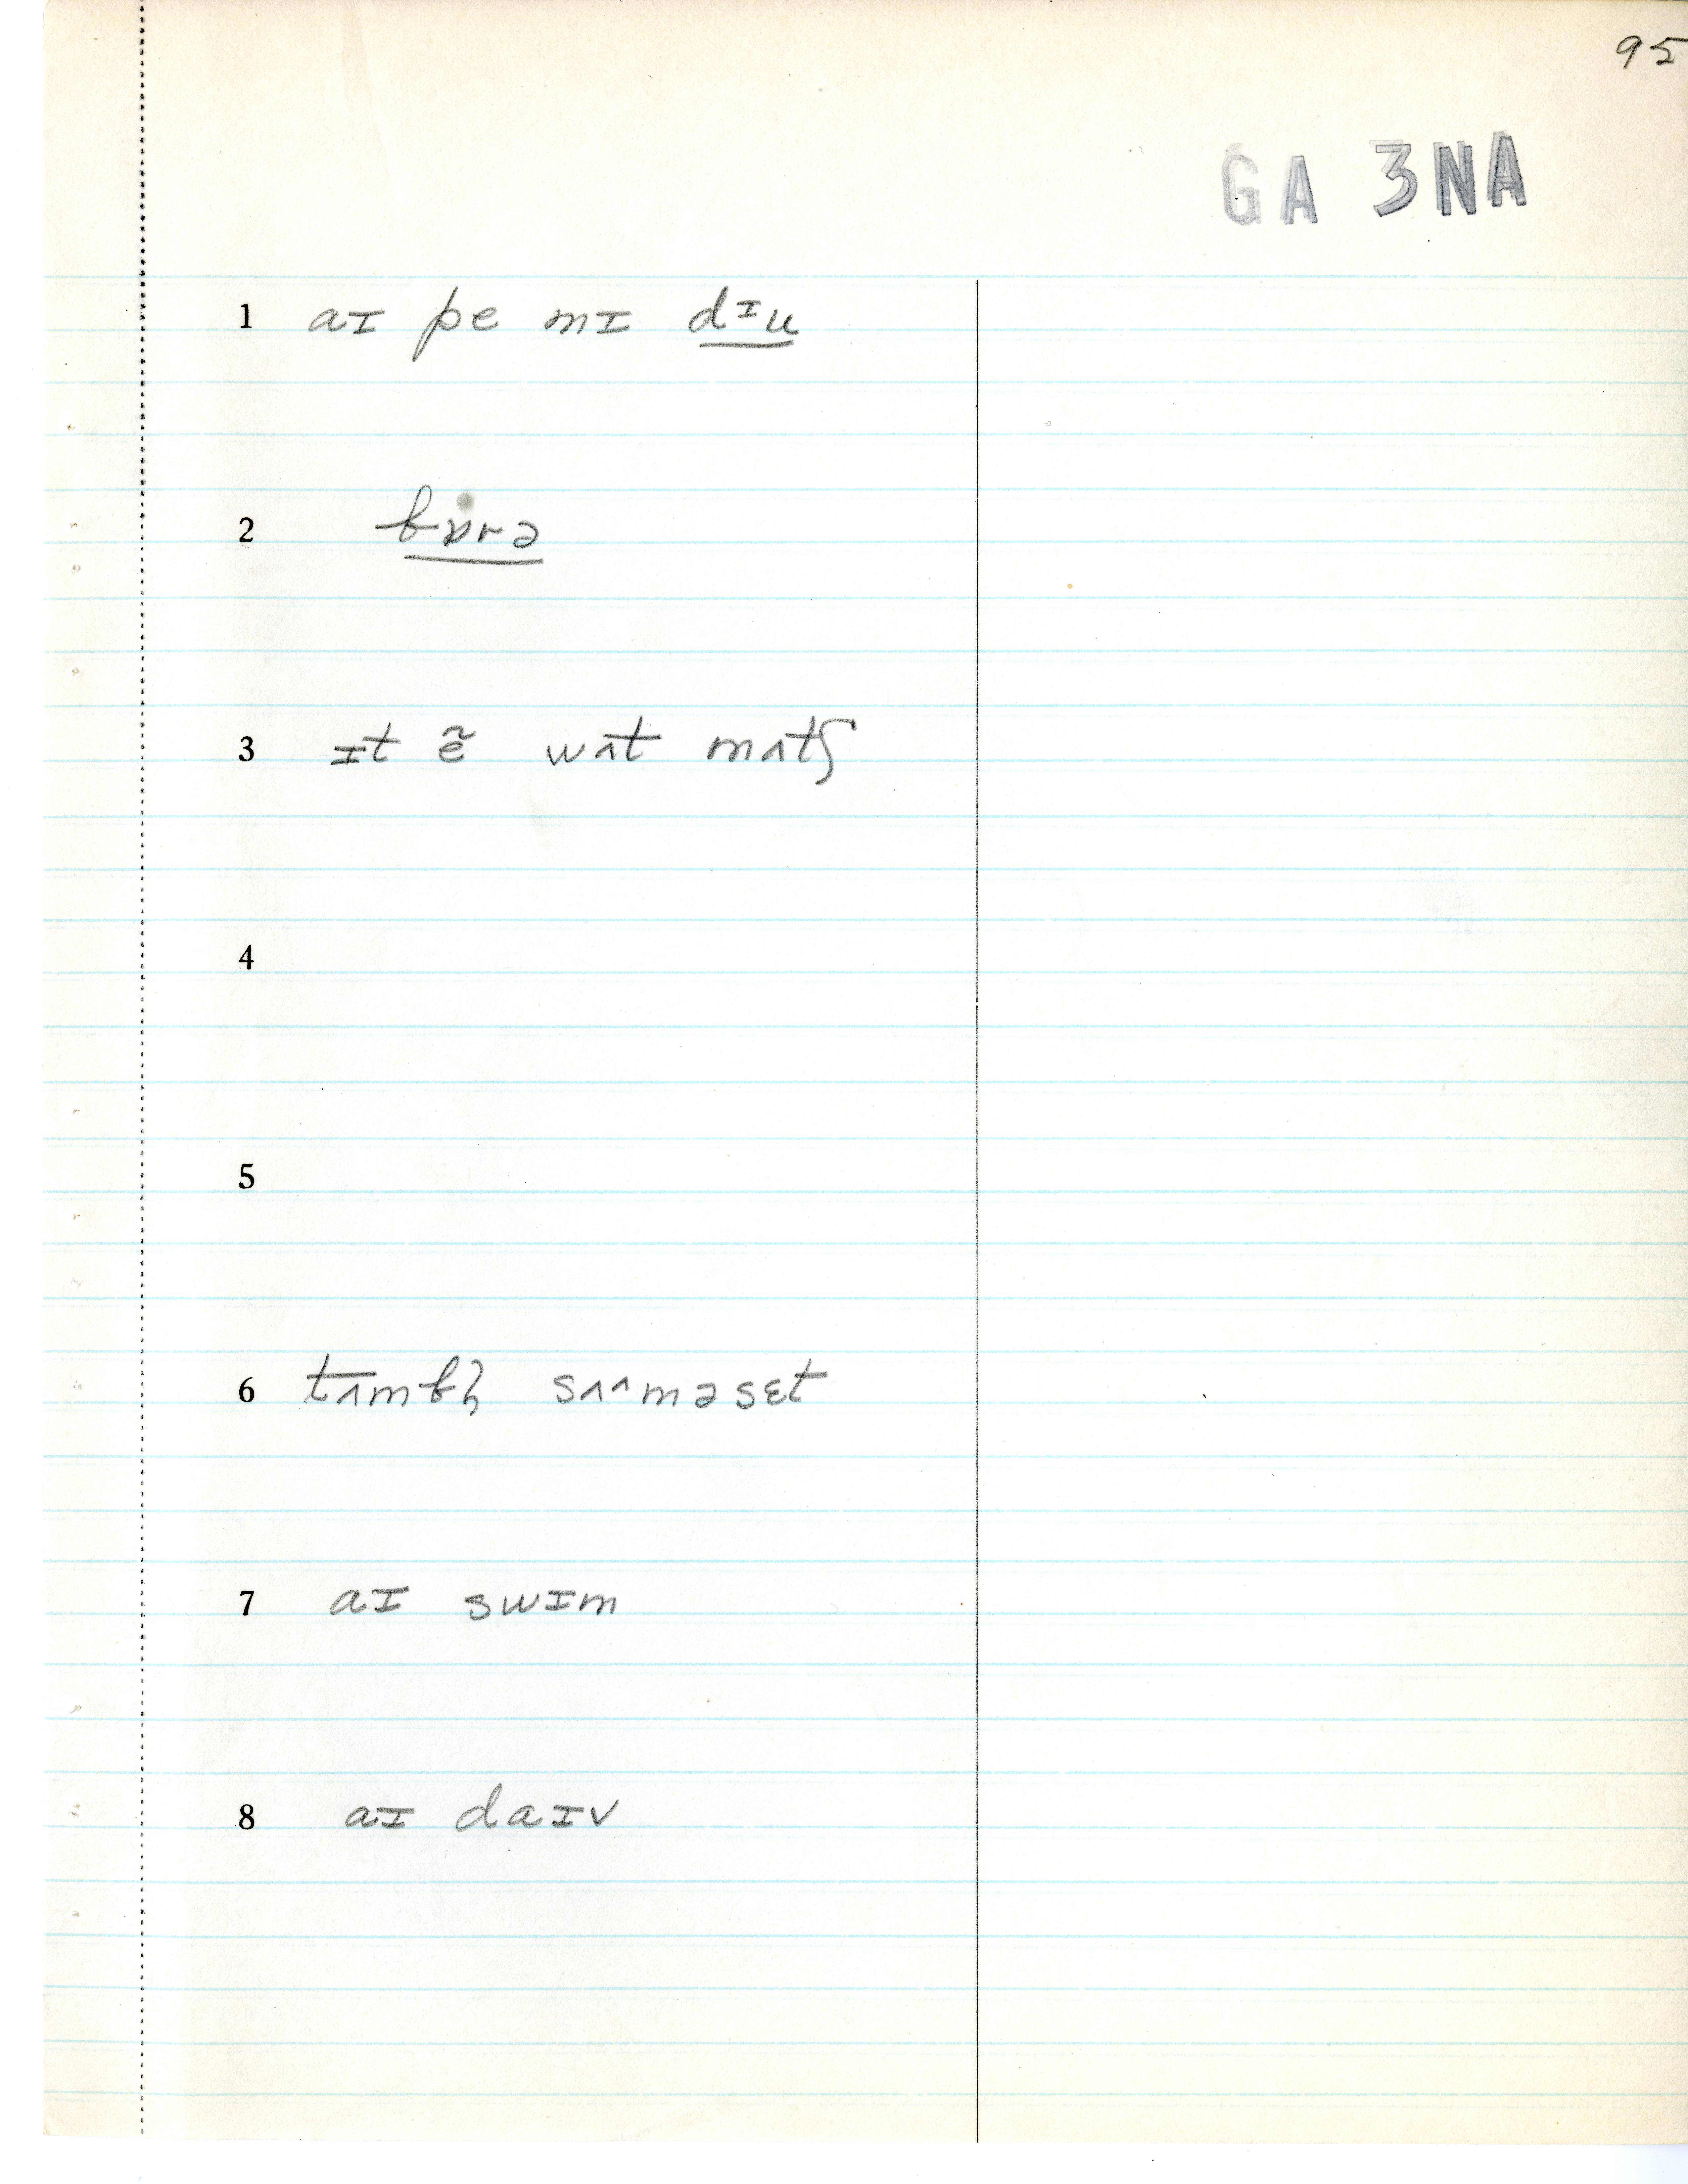 95
GA 3NA
1 aɪ pe mɪ dᶦu
2 bɒrə
3 ɪt ẽ wʌt mʌtʃ
4
5
6 tʌmbl̩ sʌ^məsɛt
7 aɪ swɪm
8 aɪ daɪv